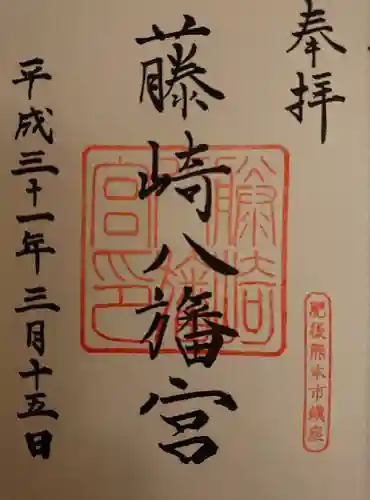 奉拝
肥後熊本市鎮座
藤崎八旛宮
藤崎八旛宮印
平成三十一年三月十五日